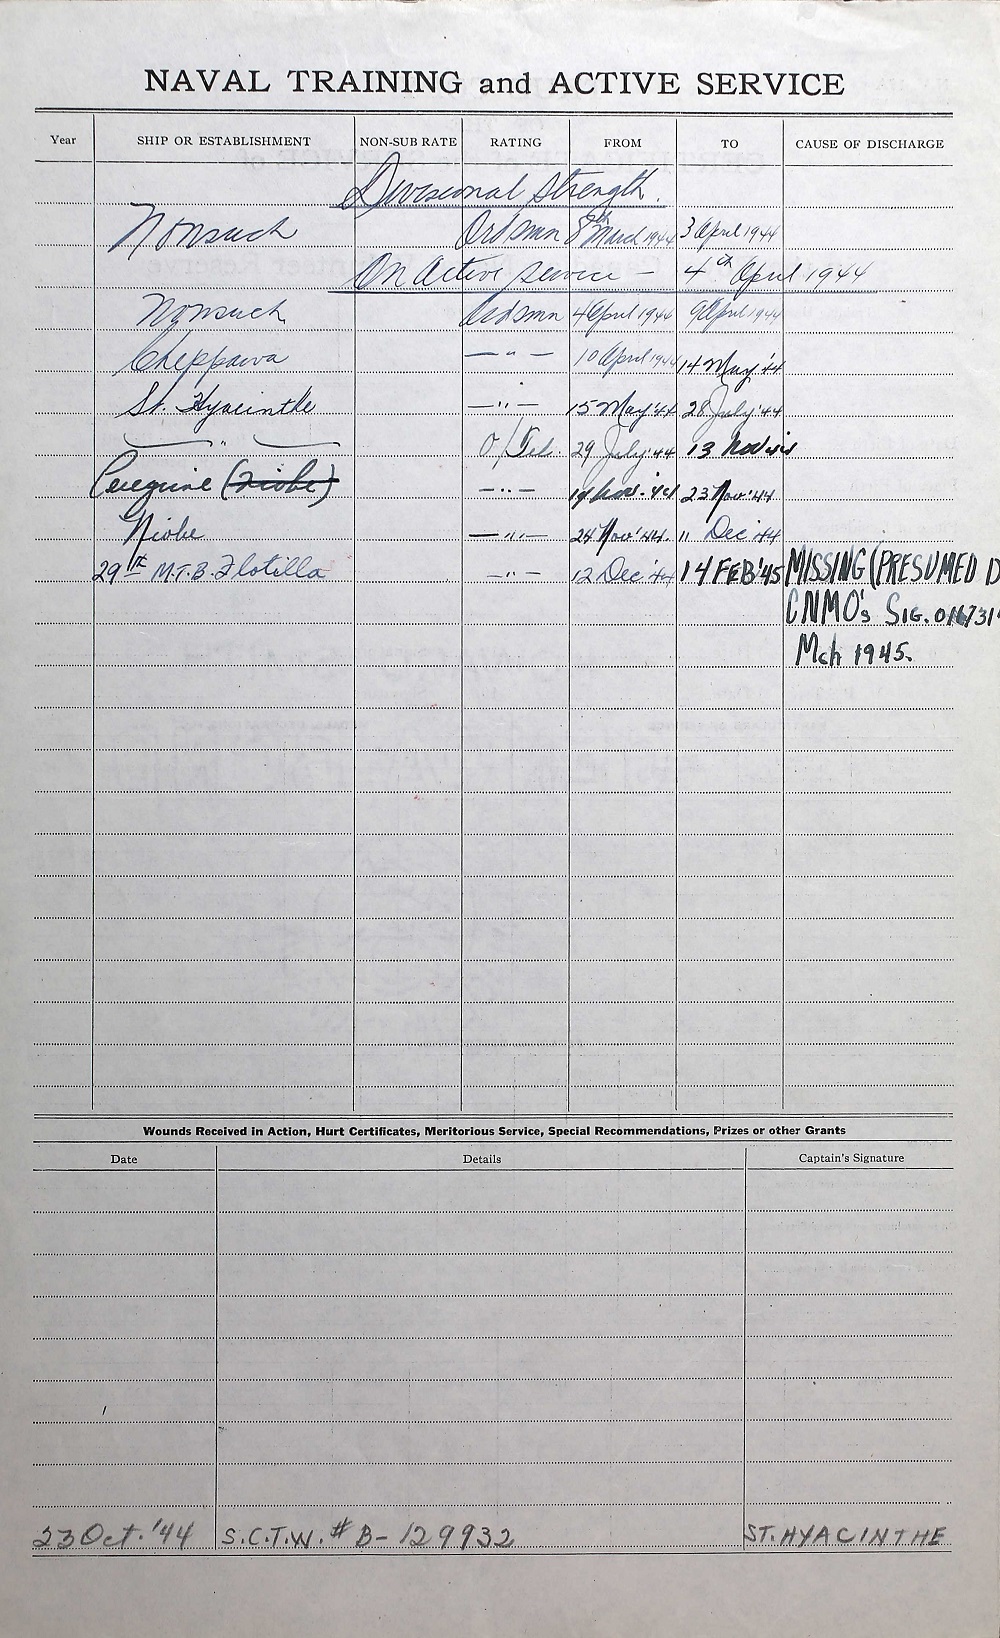 NAVAL TRAINING and ACTIVE SERVICE
Year SHIP OR ESTABLISHMENT NON-SUB RATE RATING FROM TO CAUSE OF DISCHARGE
Divisional Strength.
Nonsuch Ord smn 8th March 1944 3 April 1944
On Active service — 4th April 1944
Nonsuch Ord smn 4 April 1944 9 April 1944
Chippawa — " — 10 April 1944 14 May '44
St. Hyacinthe — " — 15 May '44 28 July '44
— " — O/Tel. 29 July '44 13 Nov 44
Peregrine (Niobe) — " — 14 Nov. '44 23 Nov '44
Niobe — " — 24 Nov '44. 11 Dec '44
29th M.T.B. Flotilla — " — 12 Dec '44 14 FEB '45 MISSING (PRESUMED D
CNMO's SIG.
Mch 1945.
Wounds Received in Action, Hurt Certificates, Meritorious Service, Special Recommendations, Prizes or other Grants
Date Details Captain's Signature
23 Oct. '44 S.C.T.W. # B-129932 ST. HYACINTHE